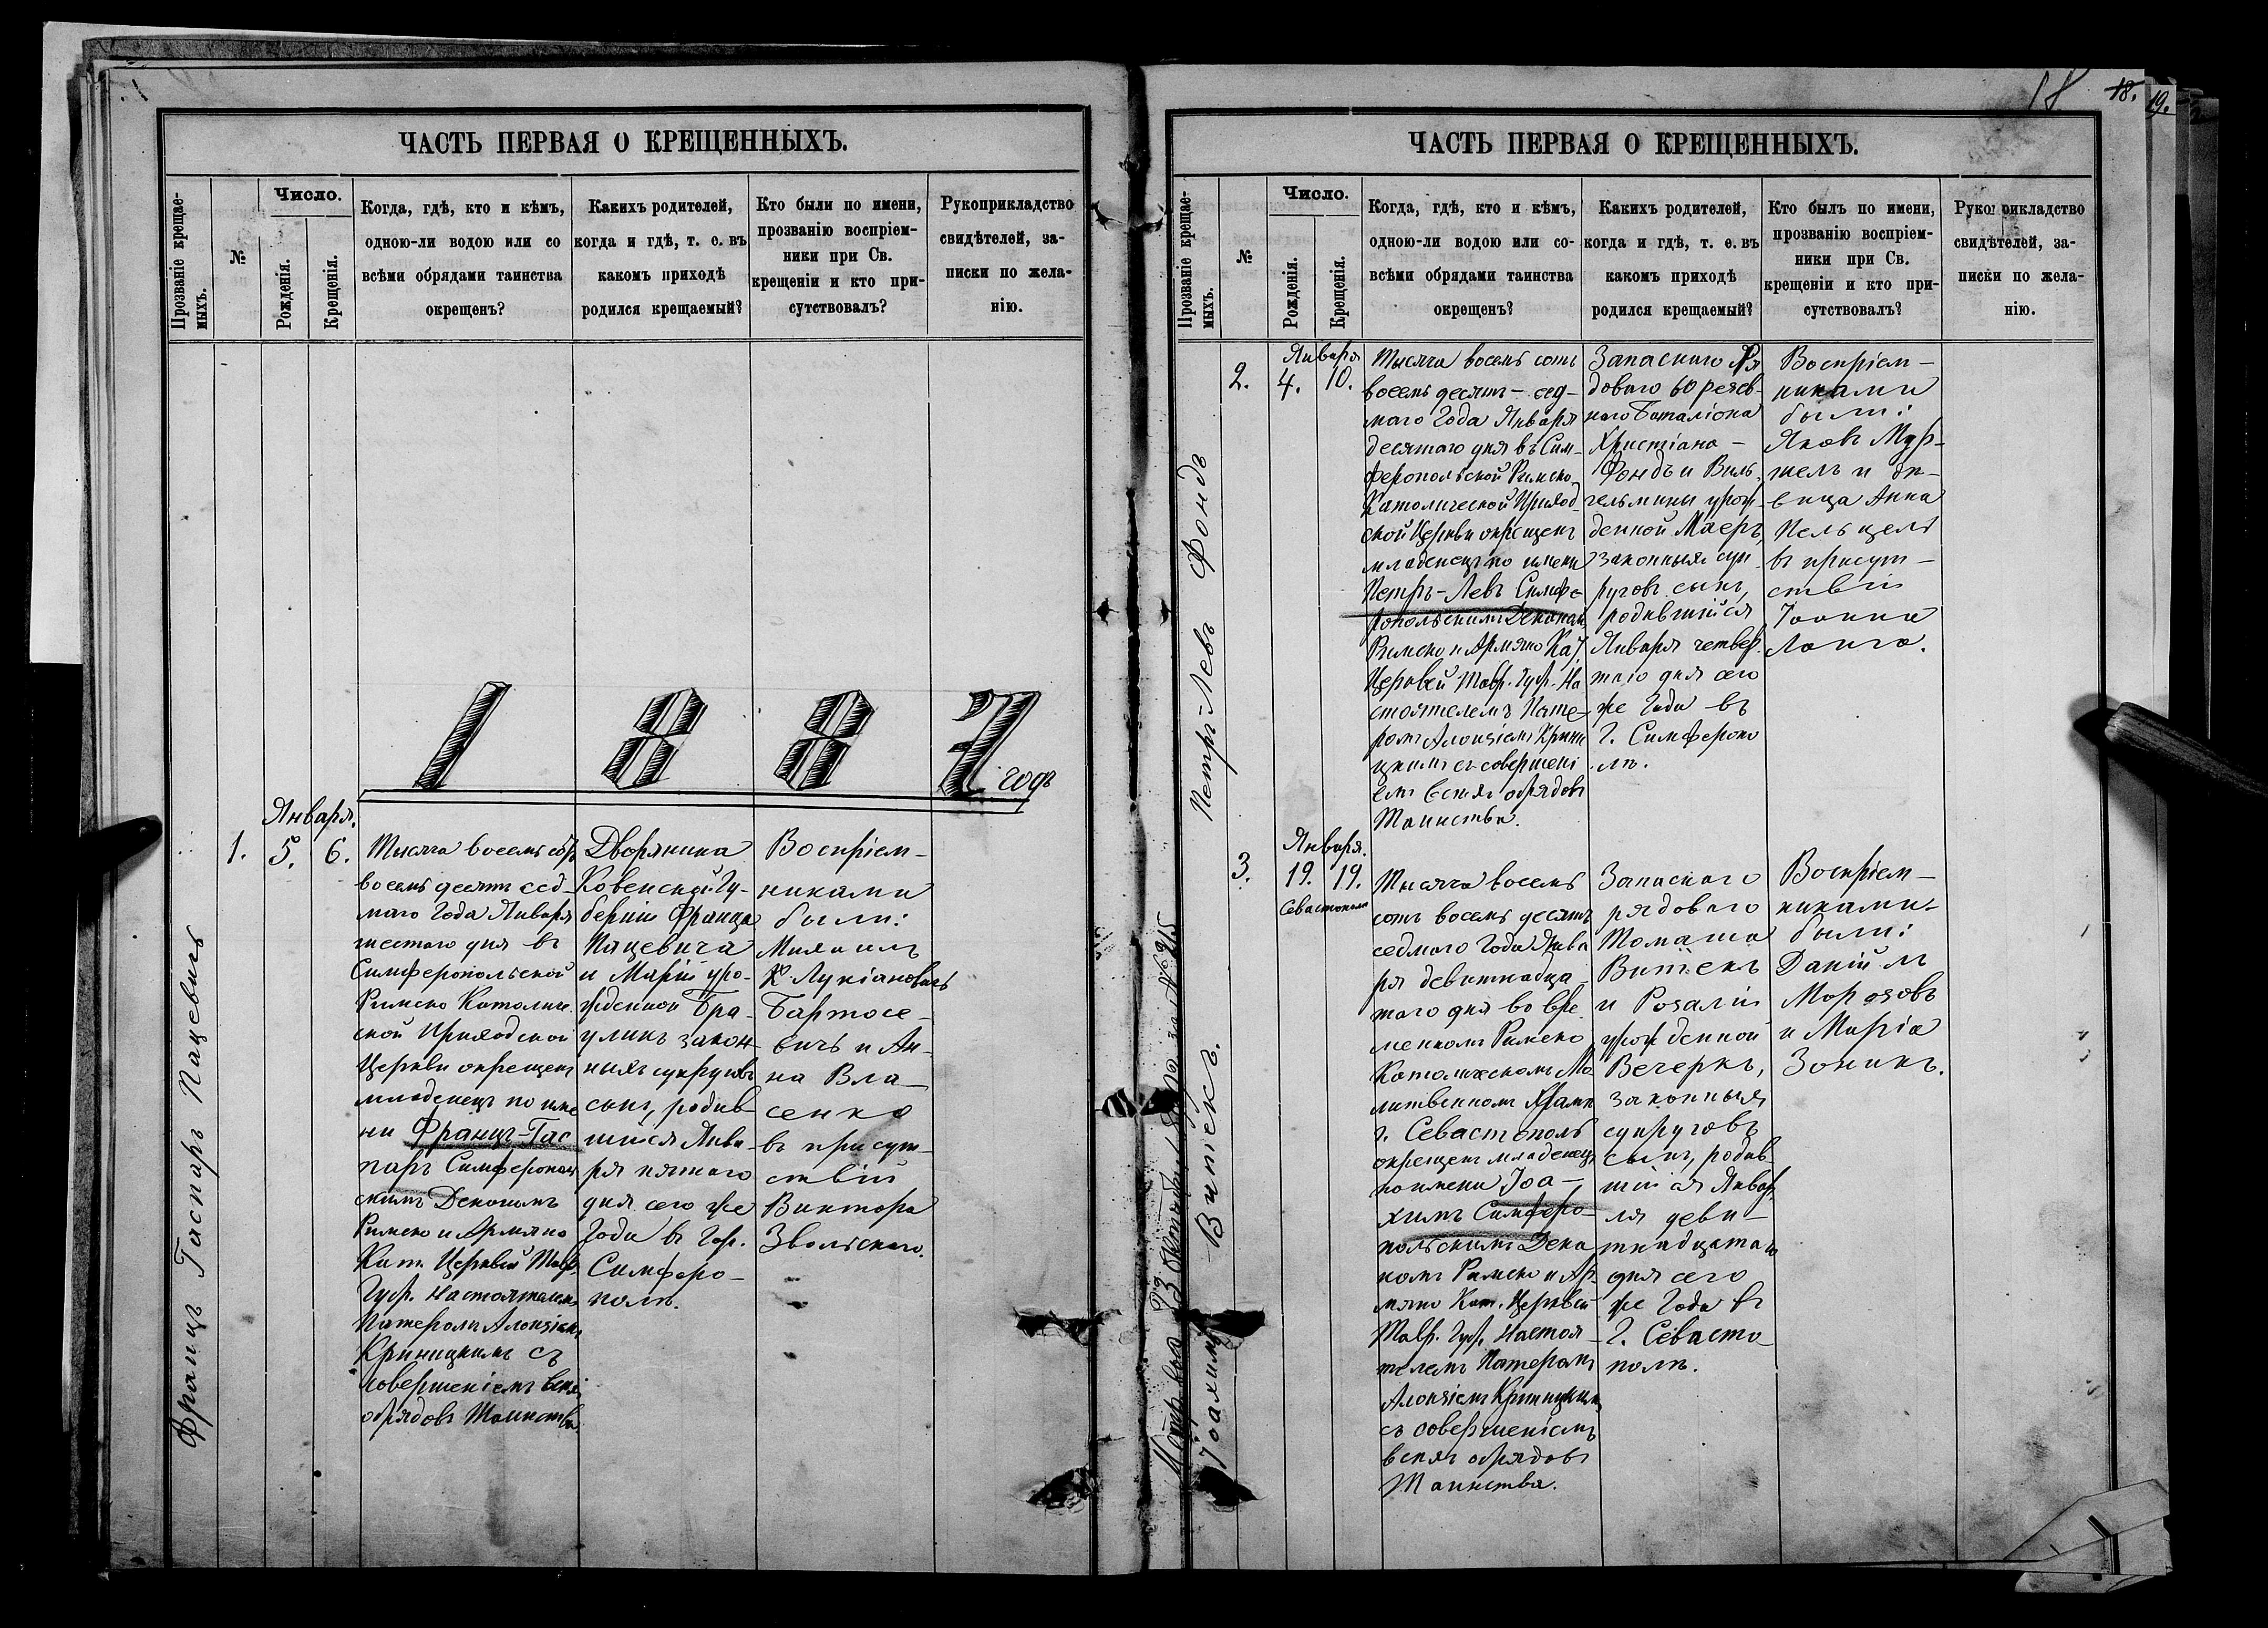 ЧАСТЬ ПЕРВАЯ О КРЕЩЕННЫХЪ.
Прозваніе крещае-
мыхъ.
№
Число.
Рожденія.
Крещенія.
Когда, гдѣ, кто и кѣмъ,
одною-ли водою или со
всѣми обрядами таинства
окрещенъ?
Какихъ родителей,
когда и гдѣ, т. е. въ
какомъ приходѣ
родился крещаемый?
Кто были по имени,
прозванію воспріем-
ники при Св.
крещеніи и кто при-
сутствовалъ?
Рукоприкладство
свидѣтелей, за-
писки по жела-
нію.
1887 годъ
Францъ Гаспаръ Пацевичъ
Января.
1. 5. 6.
Тысяча восемь сотъ
восемь десятъ сед-
маго Года Января
шестаго дня въ
Симферопольской
Римско Католиче
ской Приходской
Церкви окрещенъ
младенецъ по име
ни Францъ-Гас
паръ Симферополь
скимъ Деканомъ
Римско и Армяно
Кат. Церквей Тавр.
Губ. Настоятелемъ
Патеромъ Алоизіемъ
Криницкимъ съ
совершеніемъ всѣхъ
обрядовъ Таинства.
Дворянина
Ковенской Гу-
берніи Франца
Пацевича
и Маріи уро-
жденной Бра-
улинъ закон-
ныхъ супруговъ
сынъ, родив
шійся Янва-
ря пятаго
дня сего же
Года въ Гор.
Симферо-
полѣ.
Воспріем-
никами
были:
Михаилъ
Лукіановичъ
Бартосе-
вичъ и Ан-
на Вла-
сенко
въ присут-
ствіи
Виктора
Звольскаго.
18
18.
19.
ЧАСТЬ ПЕРВАЯ О КРЕЩЕННЫХЪ.
Прозваніе крещае-
мыхъ.
№
Число.
Рожденія.
Крещенія.
Когда, гдѣ, кто и кѣмъ,
одною-ли водою или со-
всѣми обрядами таинства
окрещенъ?
Какихъ родителей,
когда и гдѣ, т. е. въ
какомъ приходѣ
родился крещаемый?
Кто былъ по имени,
прозванію воспріем-
ники при Св.
крещеніи и кто при-
сутствовалъ?
Рукоприкладство
свидѣтелей, за-
писки по жела-
нію.
Петръ-Левъ Фондъ
Января
2. 4. 10.
Тысяча восемь сотъ
восемь десятъ-сед-
маго Года Января
десятаго дня въ Сим-
феропольской Римско
Католической Приход-
ской Церкви окрещенъ
младенецъ по имени
Петръ-Левъ Симфе-
ропольскимъ Деканомъ
Римско и Армяно Кат.
Церквей Тавр. Губ. На
стоятелемъ Пате-
ромъ Алоизіемъ Крини
цкимъ съ совершені
емъ всѣхъ обрядовъ
Таинства.
Запаснаго Ря
доваго 60 резев-
наго Баталіона
Христіана-
Фондъ и Виль-
гельмины урож-
денной Маеръ,
законныхъ суп
руговъ сынъ,
родившійся
Января четвер-
таго дня сего
же Года въ
Г. Симферопо
лѣ.
Воспріем-
никами
были:
Яковъ Мур-
желъ и дѣ-
вица Анна
Пельцель
въ присут-
ствіи
Іоанна
Ланга.
Іоахимъ Витекъ.
Января.
3. 19. 19.
Севастополь
Тысяча восемь
сотъ восемь десятъ
седмаго Года Янва
ря девятнадца
таго дня во вре
менномъ Римско
Католическомъ Мо
литвенномъ Храмѣ
г. Севастополѣ
окрещенъ младенецъ
по имени Іоа-
химъ Симферо-
польскимъ Дека
номъ Римско и Ар-
мяно Кат. Церквей
Тавр. Губ. Настоя-
телемъ Патеромъ
Алоизіемъ Криницкимъ
съ совершеніемъ
всѣхъ обрядовъ
Таинства.
Запаснаго
рядоваго
Томаша
Витекъ
и Розаліи
урожденной
Вечеркъ,
законныхъ
супруговъ
сынъ, родив
шійся Январ
ля девя-
тнадцатаго
дня сего
же Года въ
Г. Севасто-
полѣ.
Воспріем-
никами
были:
Даніилъ
Морозовъ
и Марія
Зоникъ.